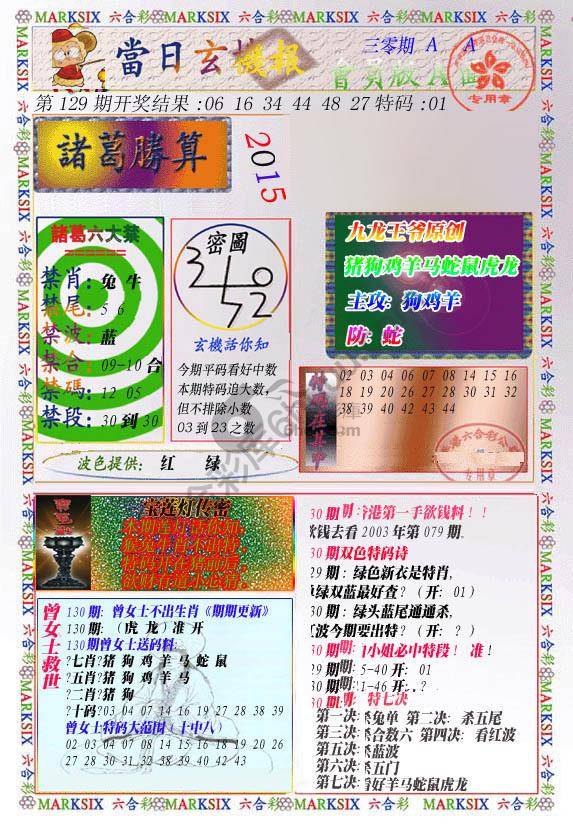 MARKSIX 六合彩 MARKSIX 六合彩 MARKSIX 六合彩 MARKSIX 六合彩 MARKSIX
當日玄機报
三零期 A A
會員版A面
专用章
第129期开奖结果:06 16 34 44 48 27特码:01
諸葛勝算
2015
諸葛六大禁
======
禁肖: 兔 牛
禁尾: 5 6
禁波: 蓝
禁合: 09-10 合
禁碼: 12 05
禁段: 30 到 30
密圖
玄機活你知
今期平码看好中数
本期特码追大数,
但不排除小数
03 到 23 之数
九龙王爷原创
猪狗鸡羊马蛇鼠虎龙
主攻: 狗鸡羊
防: 蛇
02 03 04 06 07 08 14 15 16
18 19 20 26 27 28 30 31 32
38 39 40 42 43 44
港六合彩公
专用章
波色提供: 红 绿
宝莲灯传密
本期莲灯话你知,
特码开在猪前后,
欲财在追小心猜.
曾女士救世
130 期: 曾女士不出生肖《期期更新》
130 期: (虎 龙) 准 开
130期曾女士送码料:
?七肖?猪 狗 鸡 羊 马 蛇 鼠
?五肖?猪 狗 鸡 羊 马
?二肖?猪 狗
?十码?03 04 07 14 16 19 27 28 38 39
曾女士特码大范围（十中八）
02 03 04 07 08 14 15 16 18 19 20 26
27 28 30 31 32 38 39 40 42 43
30 期: 香港第一手欲钱料！！
欲钱去看 2003 年第 079 期
30 期双色特码诗
29 期: 绿色新衣是特肖,
单绿双蓝最好查? (开: 01)
30 期: 绿头蓝尾通通杀,
红波今期要出特? (开: ? )
小姐必中特段! 准!
29 期: 5-40 开: 01
30 期: 1-46 开: . ?
30 期: 特七决
第一决: 杀兔单 第二决: 杀五尾
第三决: 杀合数六 第四决: 看红波
第五决: 杀蓝波
第六决: 杀五门
第七决: 看好羊马蛇鼠虎龙
MARKSIX 六合彩 MARKSIX 六合彩 MARKSIX 六合彩 MARKSIX 六合彩 MARKSIX